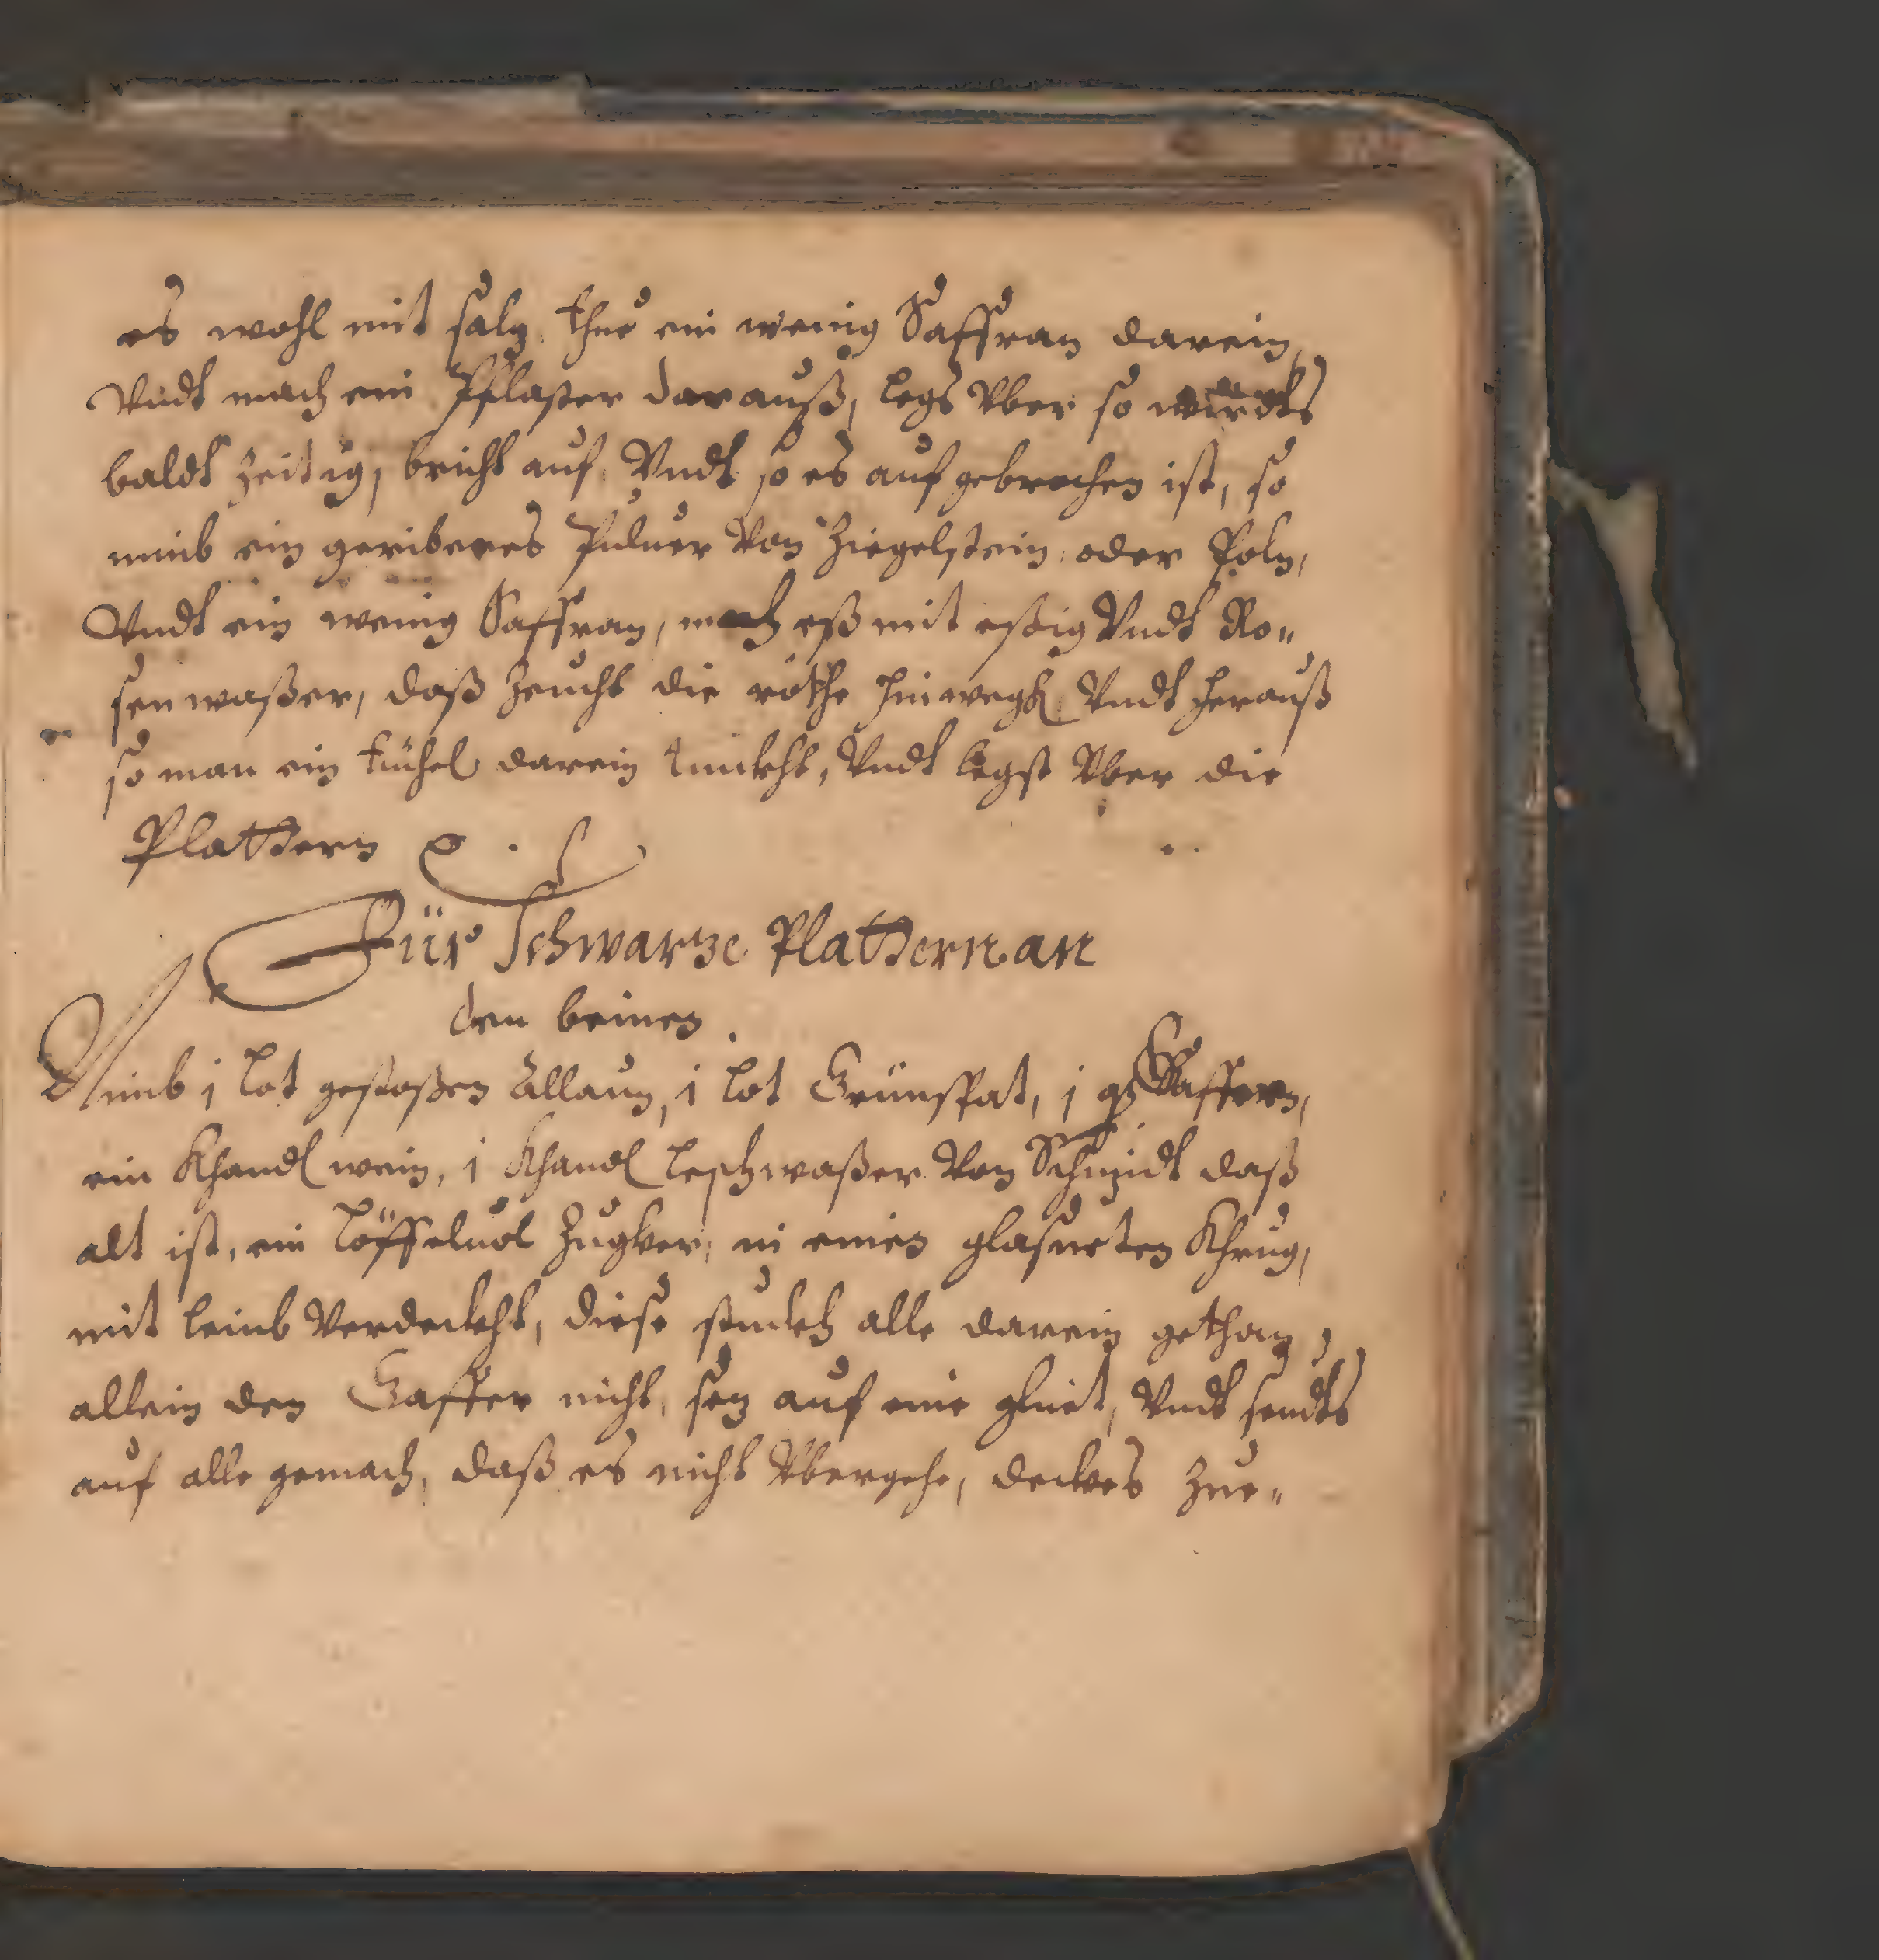 es wohl mit salz, thue ein wenig Saffran darein,
Vndt mach ein Pflaster darauß, legs Vber so wirdts
baldt Zeitig, bricht auf, Vndt so es aufgebrochen ist, so
nimb ein geribenes Puluer Von Ziegelstein, oder Poln,
Vndt ein wenig Saffran, mach eß mit eßig Vndt Ro„
senwaßer, daß Zeucht die röthe hinwegh, Vndt herauß
so man ein tüchel darein tunckht, Vndt legst Vber die
Plattern
Für Schwarze Plattern an
den beinen.
Nimb j lot gestoßen Allaun, j lot Grünspat, j Gaffern,
ein Khandl wein, j Khandl leschwaßer Von Schmidt daß
alt ist, ein löffeluol Zugker, in einen glasurten Khrug,
mit leimb Verdeckht, diese stuckh alle darein gethan,
allein den Gaffer nicht, sez auf eine gluet, Vndt seudts
auf alle gemach, daß es nicht Vbergehe, deckes Zue„